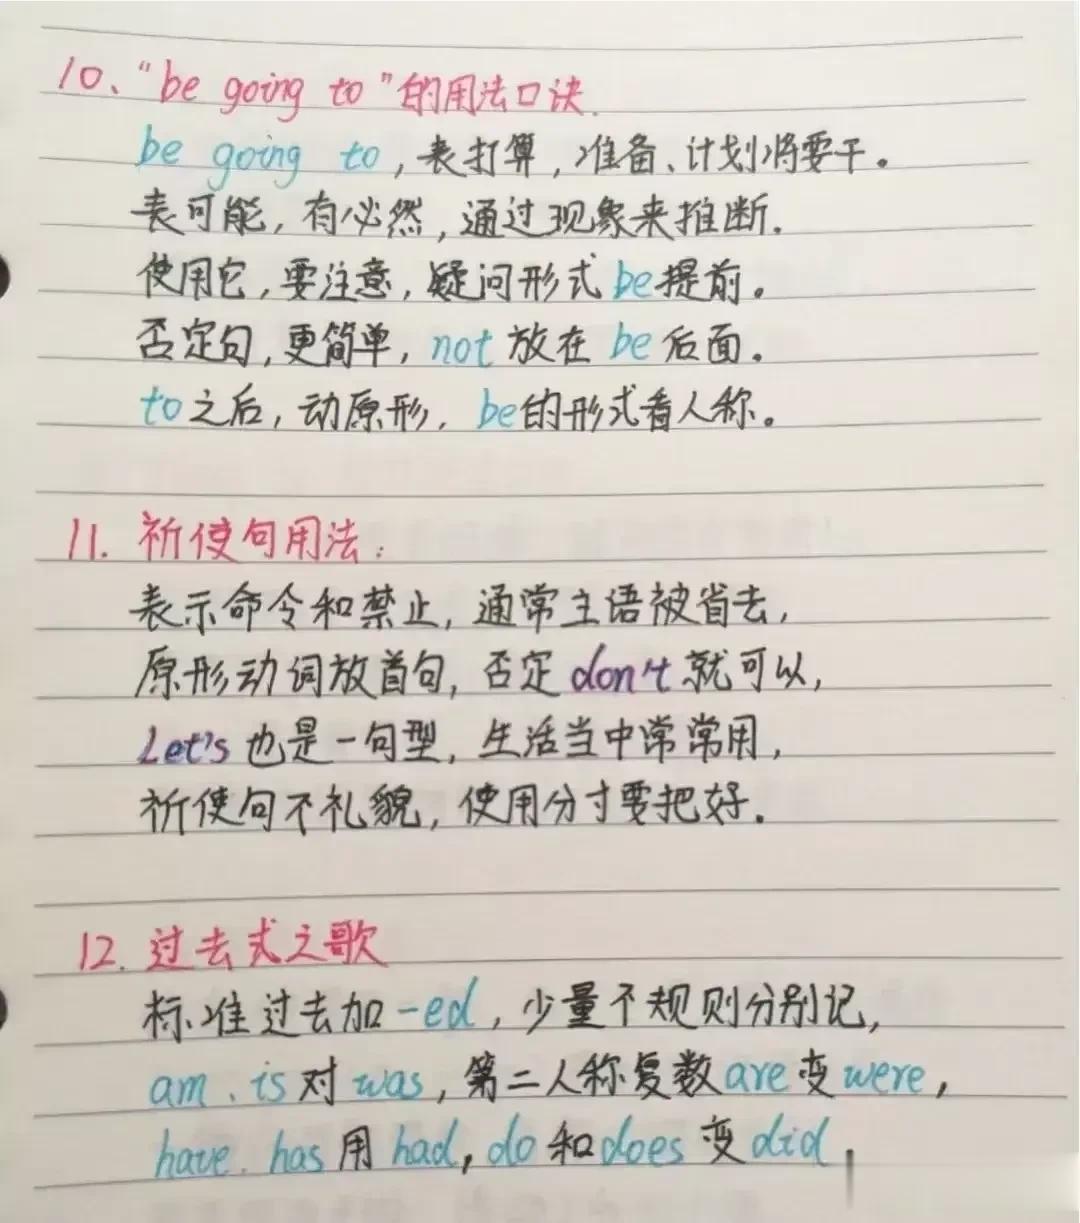 10、“be going to”的用法口诀.
be going to，表打算，准备、计划将要干。
表可能，有必然，通过现象来推断.
使用它，要注意，疑问形式be提前。
否定句，更简单，not放在be后面。
to之后，动原形，be的形式看人称。
11. 祈使句用法：
表示命令和禁止，通常主语被省去，
原形动词放首句，否定don't就可以，
Let's也是一句型，生活当中常常用，
祈使句不礼貌，使用分寸要把好.
12. 过去式之歌
标准过去加-ed，少量不规则分别记，
am、is对was，第二人称复数are变were，
have、has用had，do和does变did，